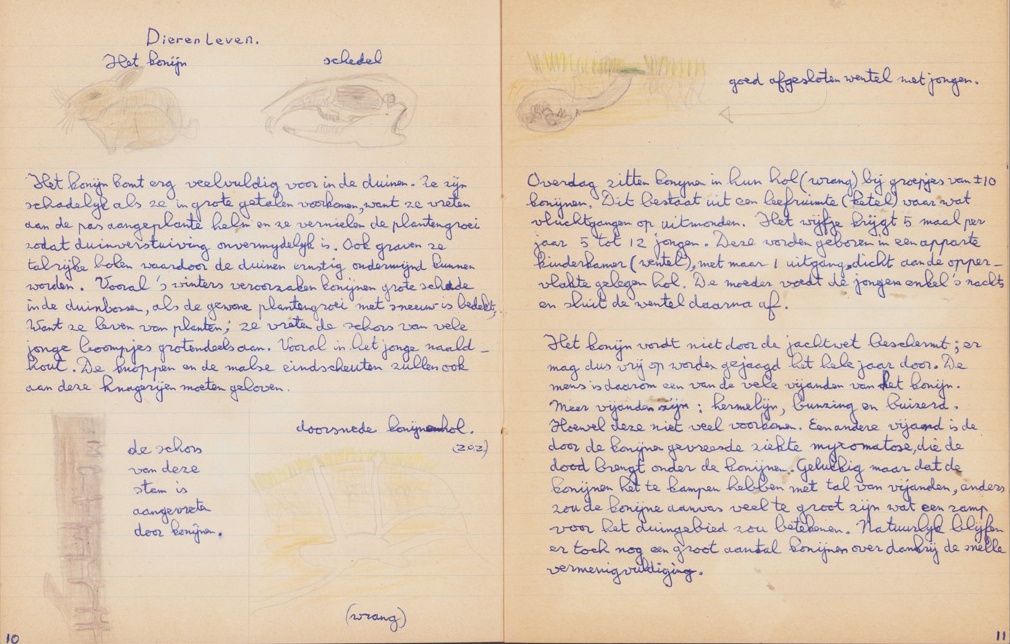 Dieren Leven.
Het konijn
schedel
Het konijn komt erg veelvuldig voor in de duinen. Ze zijn
schadelijk als ze in grote getalen voorkomen, want ze vreten
aan de pas aangeplante helm en ze vernielen de plantengroei
zodat duinverstuiving onvermydelijk is. Ook graven ze
talrijke holen waardoor de duinen ernstig ondermijnd kunnen
worden. Vooral 's winters veroorzaken konijnen grote schade
in de duinbossen, als de gewone plantengroei met sneeuw is bedekt.
Want ze leven van planten; ze vreten de schors van vele
jonge boompjes grotendeels aan. Vooral in het jonge naald-
hout. De knoppen en de malse eindscheuten zullen ook
aan deze knagerijen moeten geloven.
de schors
van deze
stam is
aangevreten
door konijnen.
doorsnede konijnenhol.
(zoz)
(wrang)
10
goed afgesloten wentel met jongen.
Overdag zitten konynen in hun hol (wrang) bij groepjes van ±10
konijnen. Dit bestaat uit een leefruimte (ketel) waar wat
vluchtgangen op uitmonden. Het wijfje krijgt 5 maal per
jaar 5 tot 12 jongen. Deze worden geboren in een apparte
kinderkamer (wentel), met maar 1 uitgang, dicht aan de opper-
vlakte gelegen hol. De moeder voedt de jongen enkel 's nachts
en sluit de wentel daarna af.
Het konijn wordt niet door de jachtwet beschermt; er
mag dus vrij op worden gejaagd het hele jaar door. De
mens is daarom een van de vele vijanden van het konijn.
Meer vijanden zijn: hermelijn, bunzing en buizerd.
Hoewel deze niet veel voorkomen. Een andere vijand is de
door de konijnen gevreesde ziekte myxomatose, die de
dood brengt onder de konijnen. Gelukkig maar dat de
konijnen het te kampen hebben met tal van vijanden, anders
zou de konijne aanwas veel te groot zijn wat een ramp
voor het duingebied zou betekenen. Natuurlijk blijfen
er toch nog een groot aantal konijnen over dankzij de snelle
vermenigvuldiging.
11